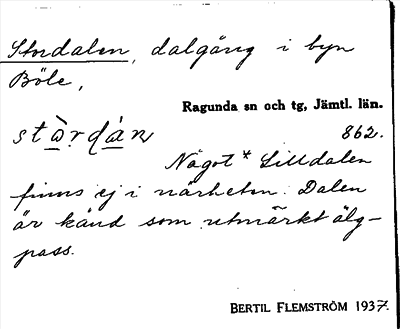 Stordalen, dalgång i byn
Böle,
Ragunda sn och tg, Jämtl. län.
stò̱rdà̱n 862.
Något * Lilldalen
finns ej i närheten. Dalen
är känd som utmärkt älg-
pass.
BERTIL FLEMSTRÖM 1937.